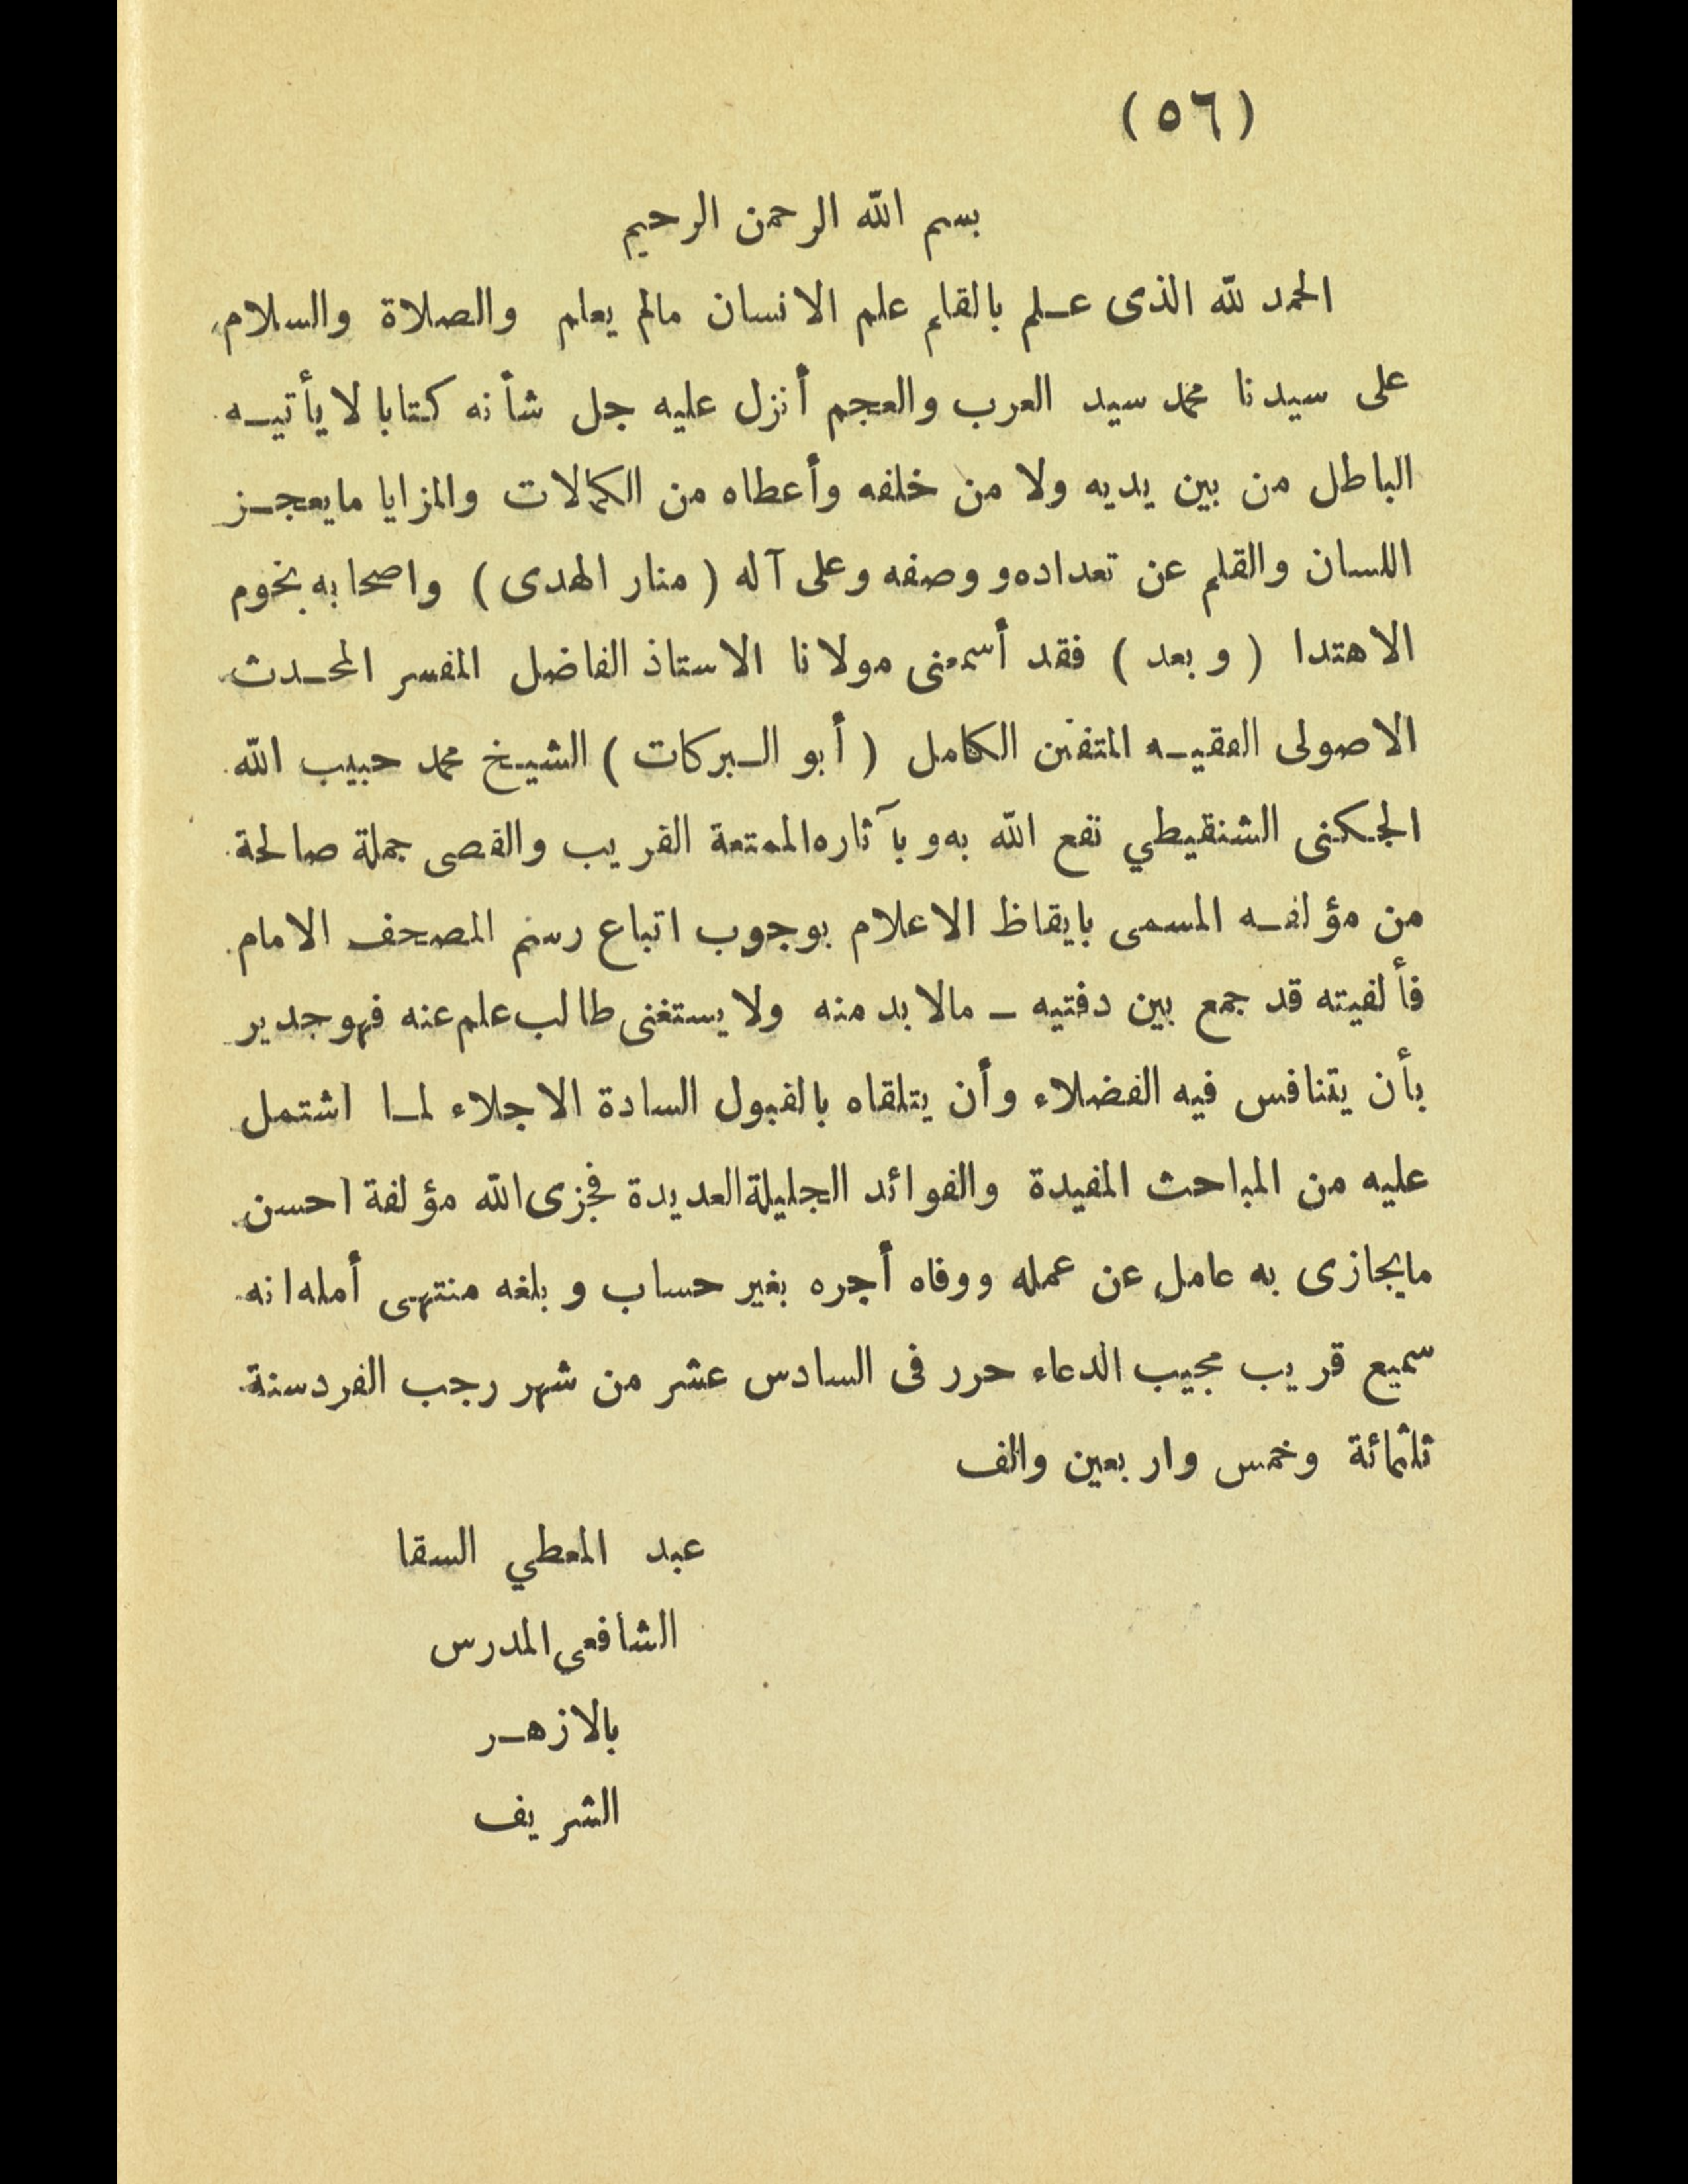 (٥٦)
بسم الله الرحمن الرحيم
الحمد لله الذى عـلم بالقلم علم الانسان مالم يعلم والصلاة والسلام
على سيدنا محمد سيد العرب والعجم أنزل عليه جل شأنه كتابا لا يأتيـه
الباطل من بين يديه ولا من خلفه وأعطاه من الكمالات والمزايا مايعجـز
اللسان والقلم عن تعداده و وصفه وعلى آله ( منار الهدى ) واصحابه نجوم
الاهتدا ( وبعد ) فقد أسمعنى مولانا الاستاذ الفاضل المفسر المحـدث
الاصولى الفقيـه المتفنن الكامل ( أبو الـبركات ) الشيـخ محمد حبيب الله
الجـكنى الشنقيطي نفع الله به و بآثاره الممتعة القريب والقصى جملة صالحة
من مؤلفـه المسمى بايقاظ الاعلام بوجوب اتباع رسم المصحف الامام
فألفيته قد جمع بين دفتيه ــ مالا بد منه ولا يستغنى طالب علم عنه فهو جدير
بأن يتنافس فيه الفضلاء وأن يتلقاه بالقبول السادة الاجلاء لمـا اشتمل
عليه من المباحث المفيدة والفوائد الجليلة العديدة فجزى الله مؤلفة احسن
مايجازى به عامل عن عمله ووفاه أجره بغير حساب و بلغه منتهى أمله انه
سميع قريب مجيب الدعاء حرر فى السادس عشر من شهر رجب الفرد سنة
ثلثمائة وخمس واربعين والف
عبد المعطي السقا
الشافعى المدرس
بالازهـر
الشريف